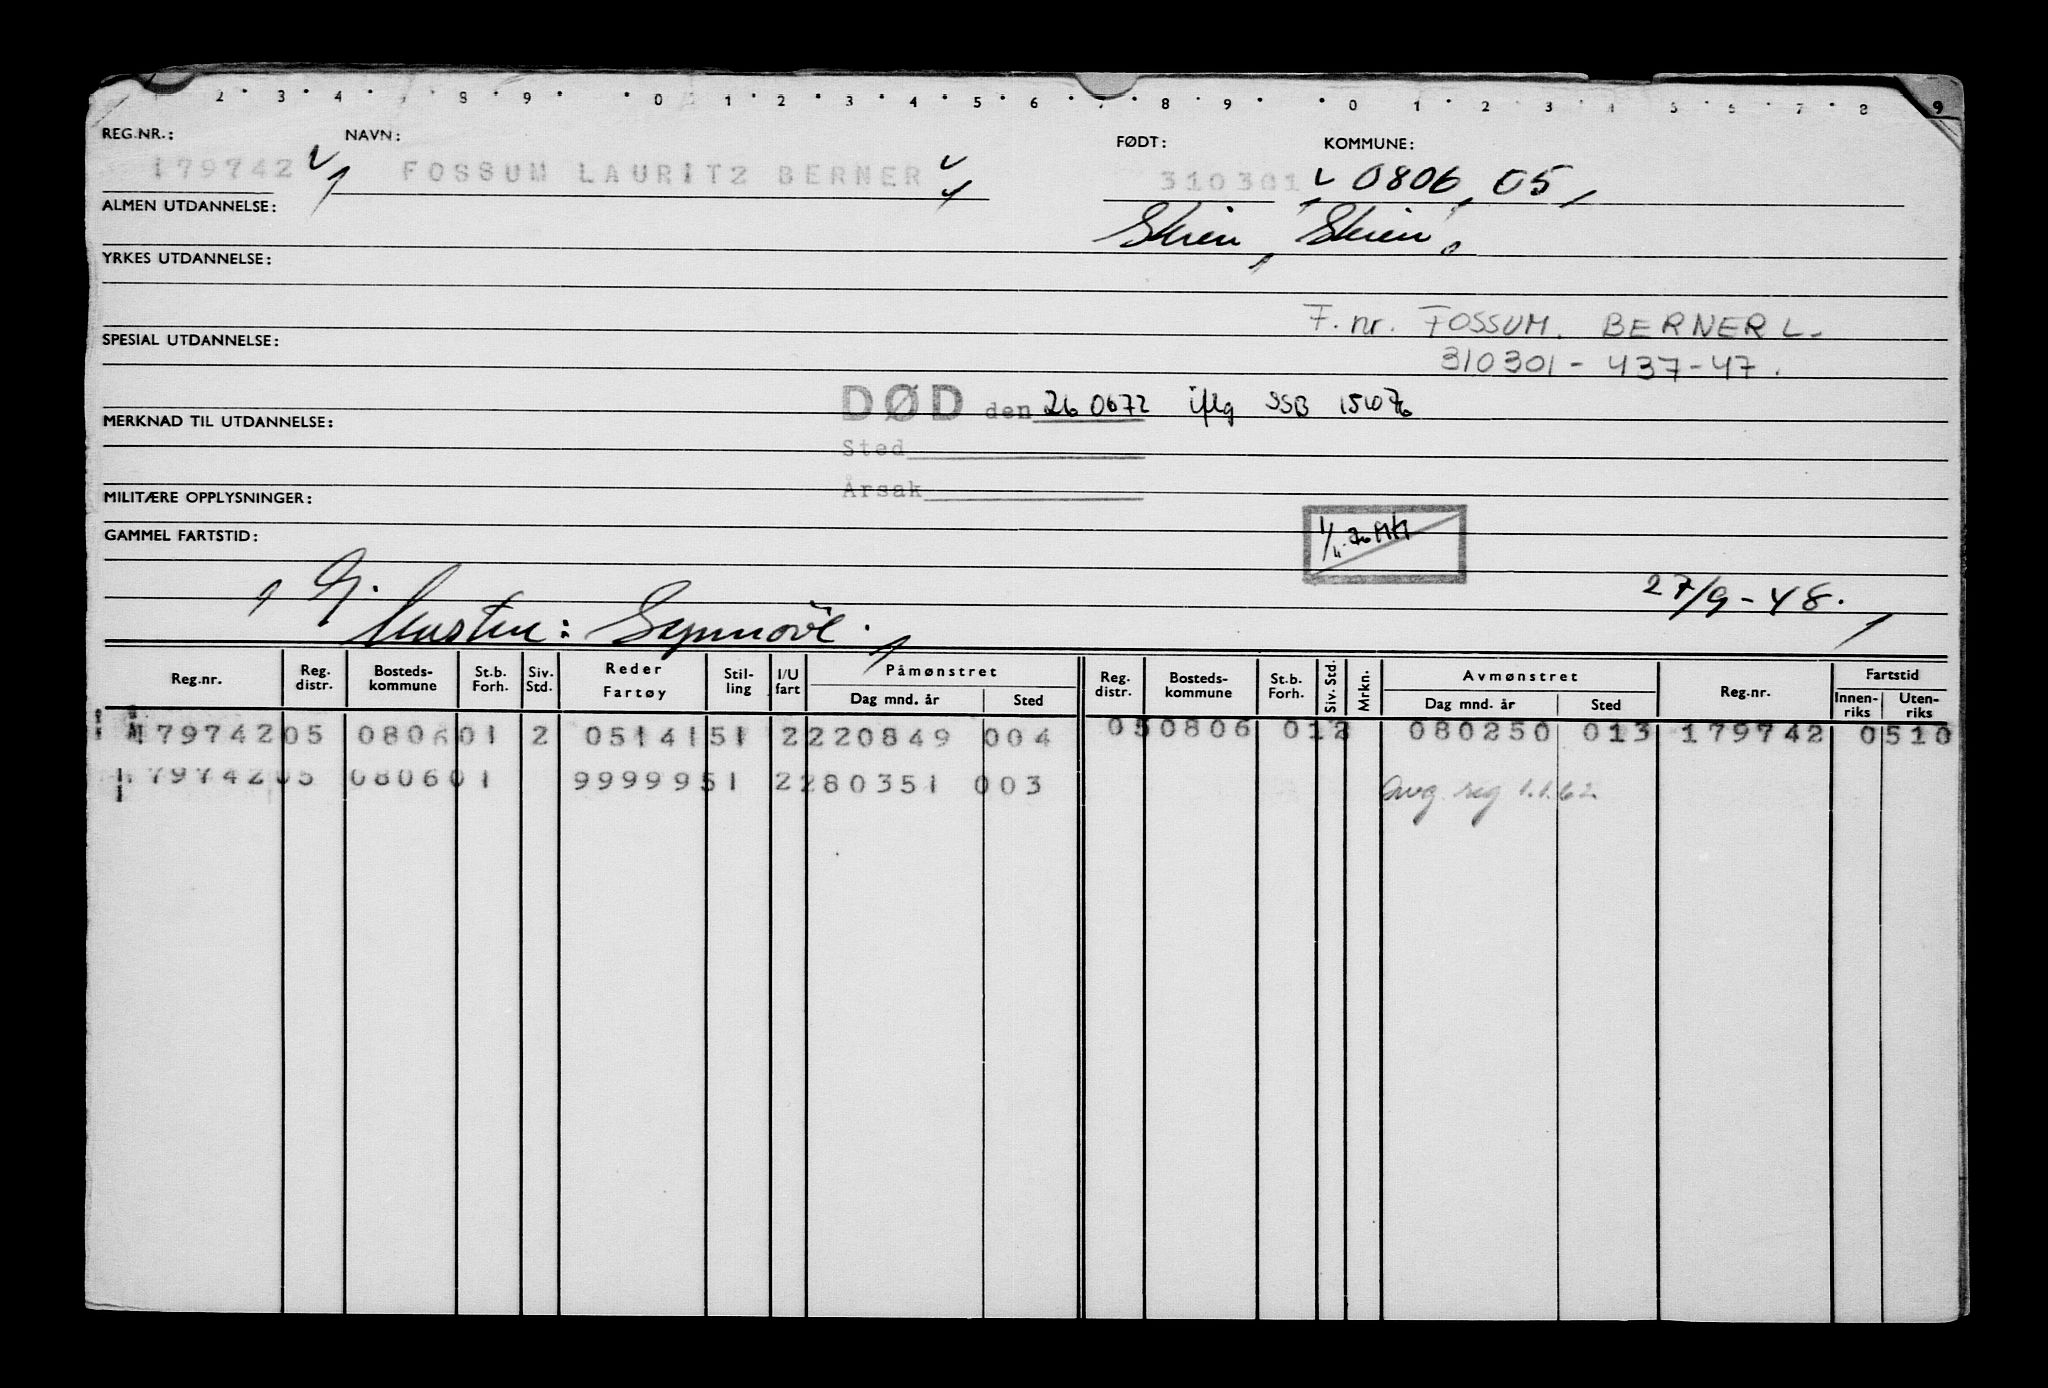 2 · 3 · 4 · 7 · 8 9 · · 0 1 · 2 · 3 · 4 · 5 · 6 · 7 · 8 · 9 · · 0 1 · 2 · 3 · 4 5 · 6 · 7 · 8 9
REG.NR.: NAVN: FØDT: KOMMUNE:
179742 FOSSUM LAURITZ BERNER 310301 0806 05
ALMEN UTDANNELSE: Skien, Skien
YRKES UTDANNELSE:
F. nr. FOSSUM. BERNER L.
SPESIAL UTDANNELSE: 310301 - 437-47.
DØD den 260672 iflg SSB
MERKNAD TIL UTDANNELSE:
Sted
Årsak
MILITÆRE OPPLYSNINGER:
GAMMEL FARTSTID:
27/9-48.
G.
Synnøve.
Reg.nr. Reg. distr. Bosteds-kommune St.b. Forh. Siv. Std. Reder Fartøy Stil-ling I/U fart Påmønstret Dag mnd. år Sted Reg. distr. Bosteds-kommune St.b. Forh. Siv. Std. Mrkn. Avmønstret Dag mnd. år Sted Reg.nr. Fartstid Innen-riks Uten-riks
179742 05 0806 01 2 05141 51 2 220849 004 05 0806 01 2 080250 013 179742 0510
179742 05 0806 01 99999 51 2 280351 003 Avg. reg 1.1.62